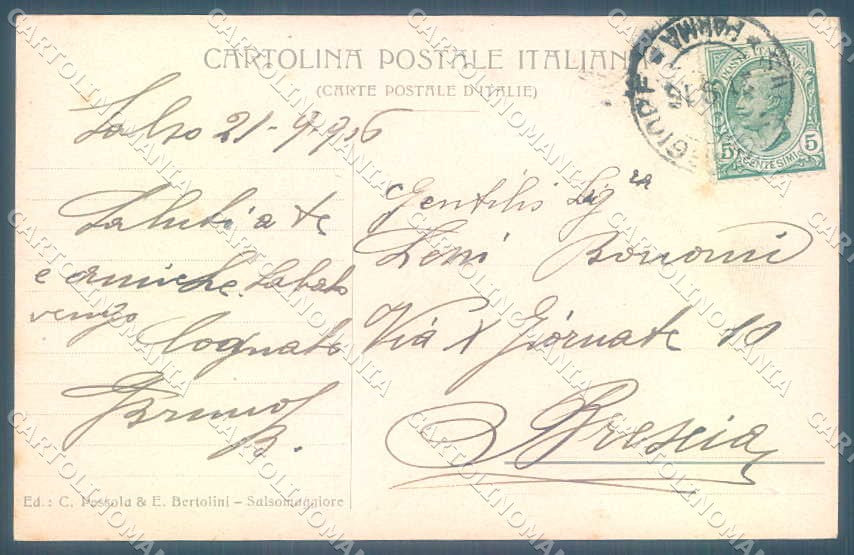 CARTOLINA POSTALE ITALIANA
(CARTE POSTALE D'ITALIE)
Salso 21-9-916
Saluti a te
e amiche. Sabato
vengo
Cognato
Bruno
B.
Gentilis Sigra
Bonomi
Via X Giornate 10
Brescia
Ed.: C. Possola & E. Bertolini – Salsomaggiore
PARMA
POSTE ITALIANE
5 CENTESIMI 5
CARTOLINOMANIA